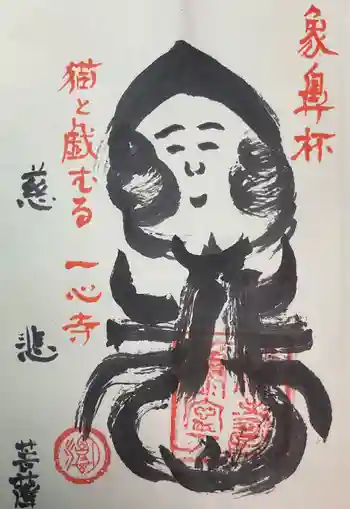 象鼻杯
猫と戯むる 一心寺
慈悲
菩薩